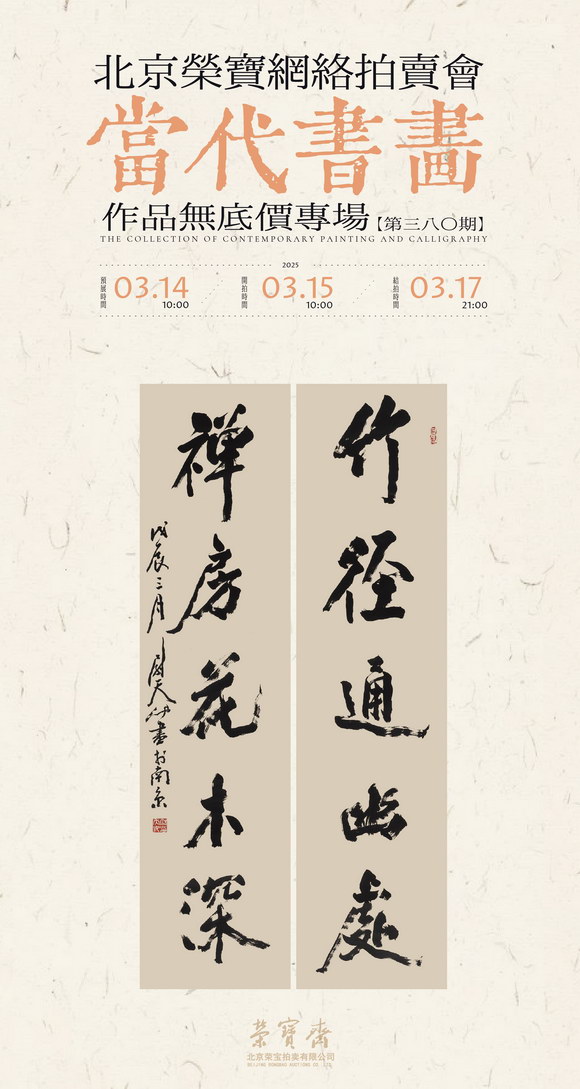 北京榮寶網絡拍賣會
當代書畫
作品無底價專場【第三八〇期】
THE COLLECTION OF CONTEMPORARY PAINTING AND CALLIGRAPHY
2025
預展時間 03.14 10:00
開拍時間 03.15 10:00
結拍時間 03.17 21:00
竹径通幽處
禅房花木深
戊辰三月
書於南京
榮寶齋
北京荣宝拍卖有限公司
BEIJING RONGBAO AUCTIONS CO.,LTD.